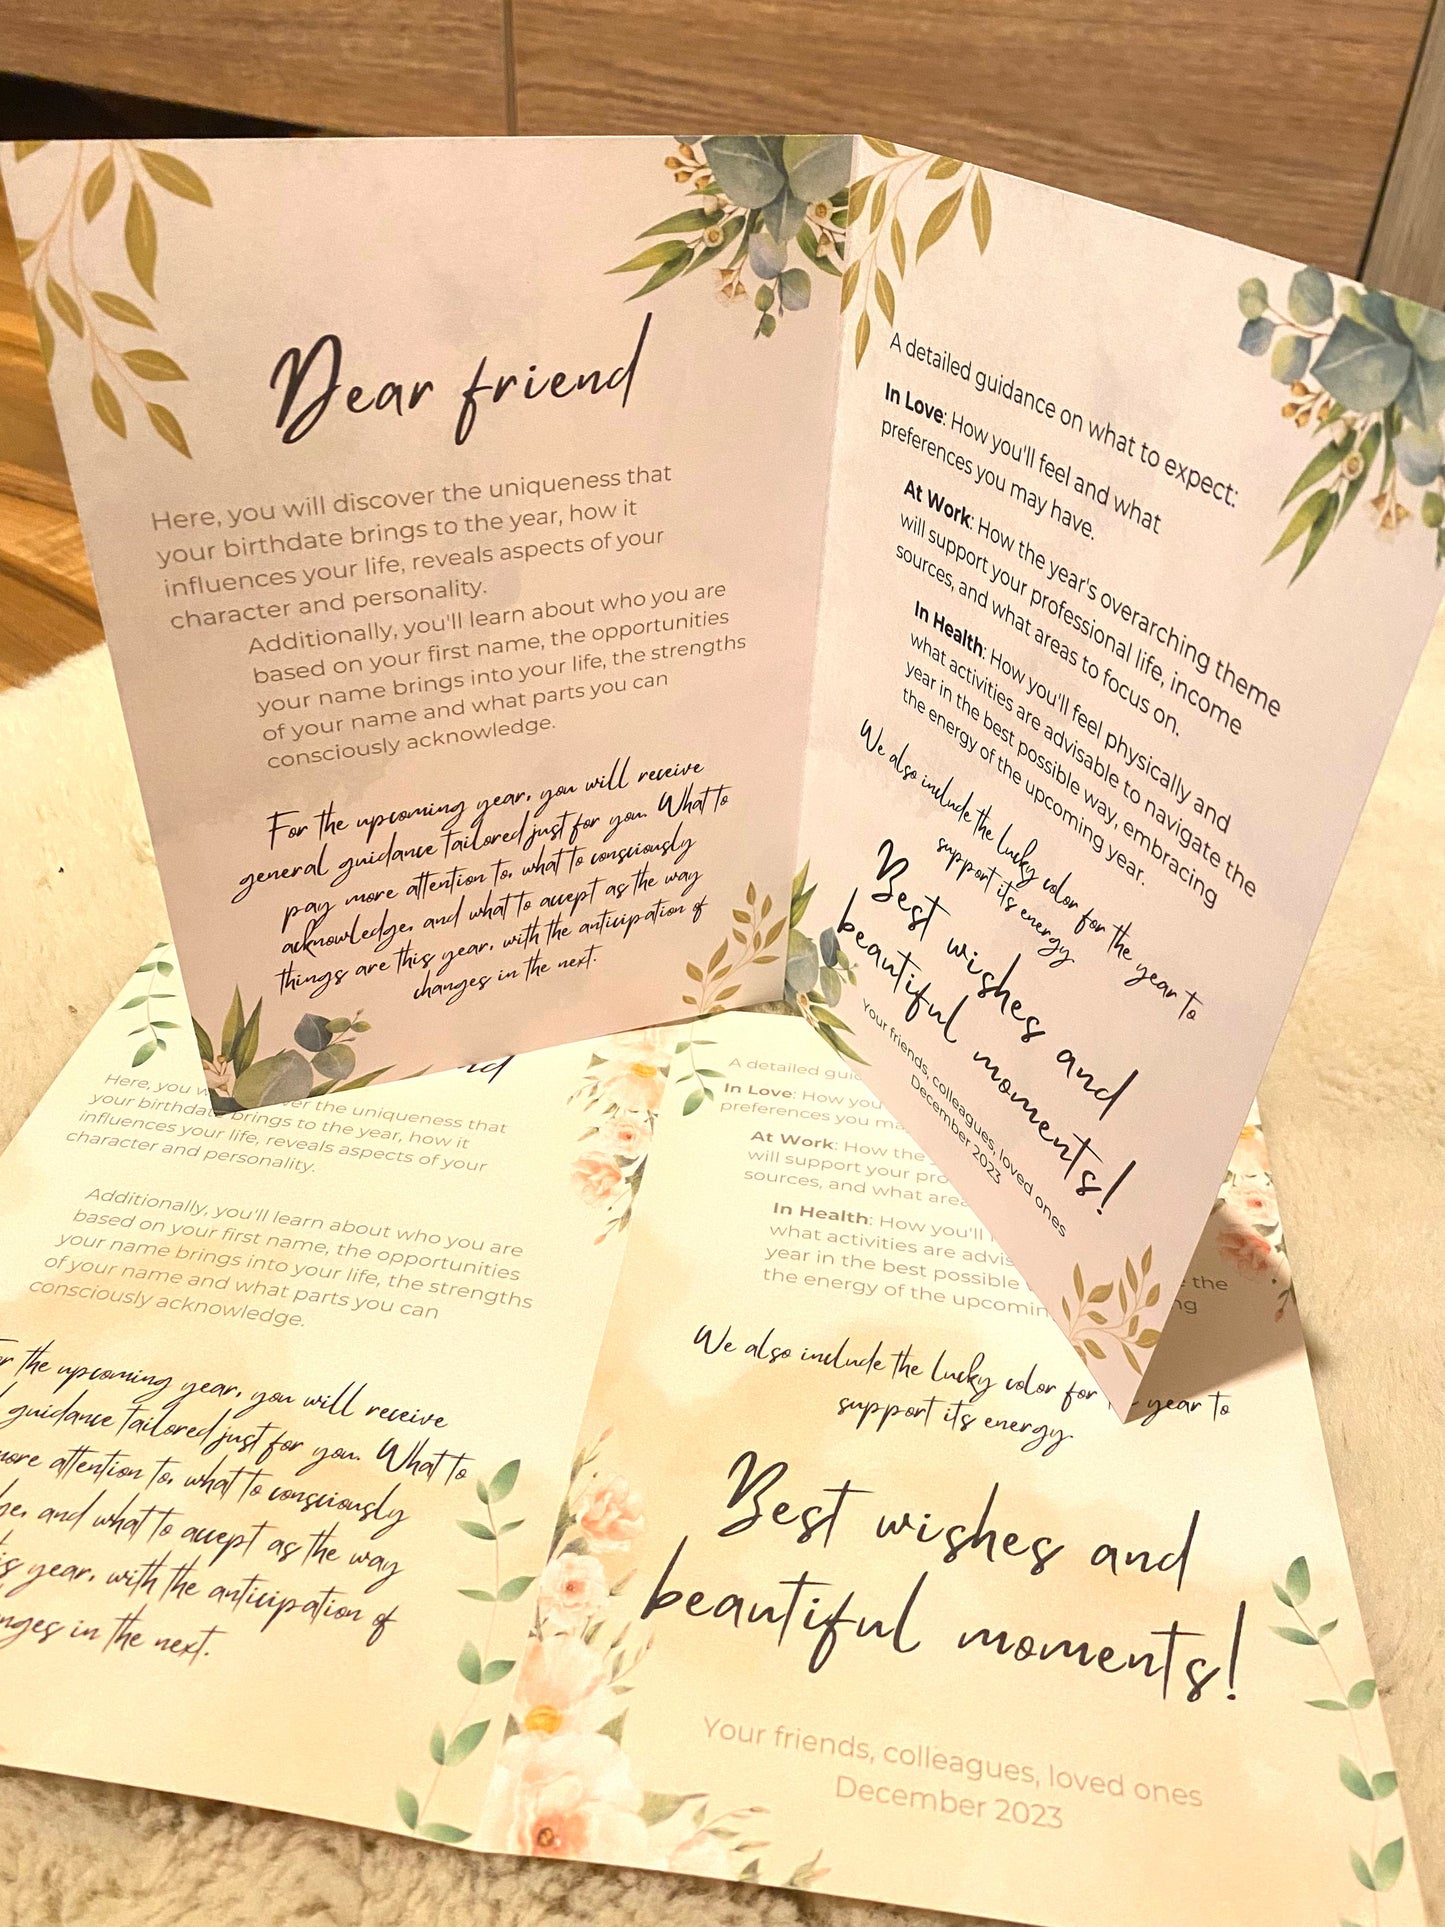 Dear friend
Here, you will discover the uniqueness that
your birthdate brings to the year, how it
influences your life, reveals aspects of your
character and personality.
Additionally, you'll learn about who you are
based on your first name, the opportunities
your name brings into your life, the strengths
of your name and what parts you can
consciously acknowledge.
For the upcoming year, you will receive
general guidance tailored just for you. What to
pay more attention to, what to consciously
acknowledge, and what to accept as the way
things are this year, with the anticipation of
changes in the next.
A detailed guidance on what to expect:
In Love: How you'll feel and what
preferences you may have.
At Work: How the year's overarching theme
will support your professional life, income
sources, and what areas to focus on.
In Health: How you'll feel physically and
what activities are advisable to navigate the
year in the best possible way, embracing
the energy of the upcoming year.
We also include the lucky color for the year to
support its energy.
Best wishes and
beautiful moments!
Your friends, colleagues, loved ones
December 2023
Here, you the uniqueness that
your birthdate brings to the year, how it
influences your life, reveals aspects of your
character and personality.
Additionally, you'll learn about who you are
based on your first name, the opportunities
your name brings into your life, the strengths
of your name and what parts you can
consciously acknowledge.
the upcoming year, you will receive
guidance tailored just for you. What to
more attention to, what to consciously
and what to accept as the way
year, with the anticipation of
in the next.
A detailed
In Love: How you
preferences you
At Work: How the
will support your
sources, and what
In Health: How you'll
what activities are the
year in the best possible
the energy of the
We also include the lucky color for year to
support its energy.
Best wishes and
beautiful moments!
Your friends, colleagues, loved ones
December 2023